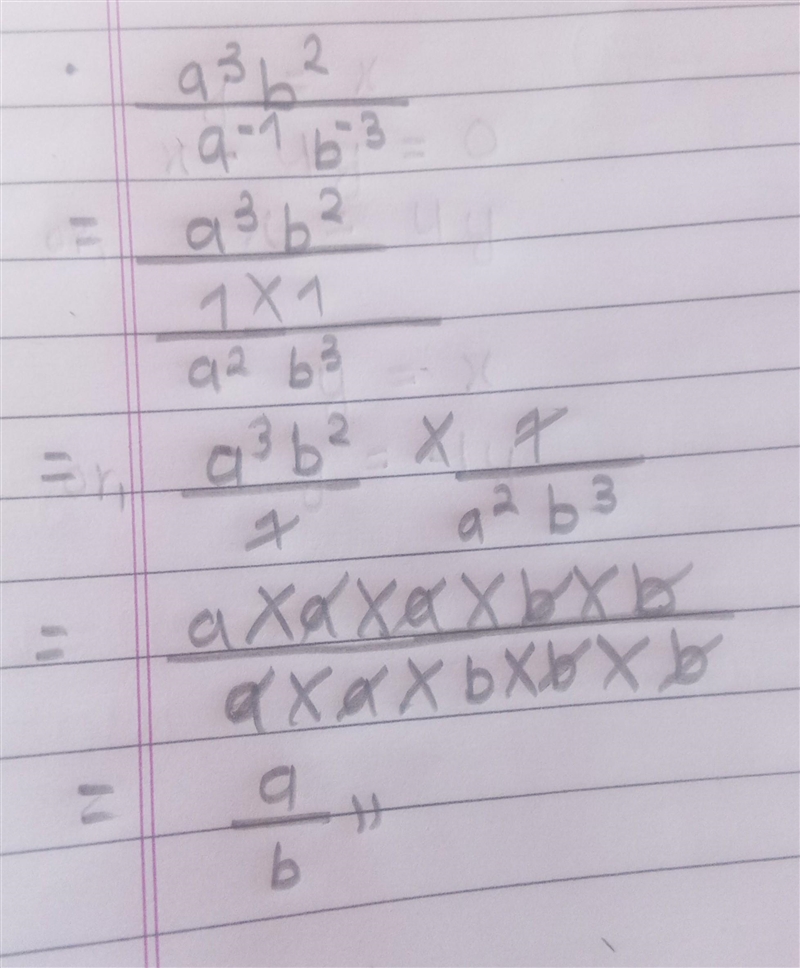 a³b²
a⁻¹ b⁻³
= a³ b²
1 × 1
a² b³
= a³ b² × 1
1 a² b³
= a × a × a × b × b
a × a × b × b × b
= a
b "